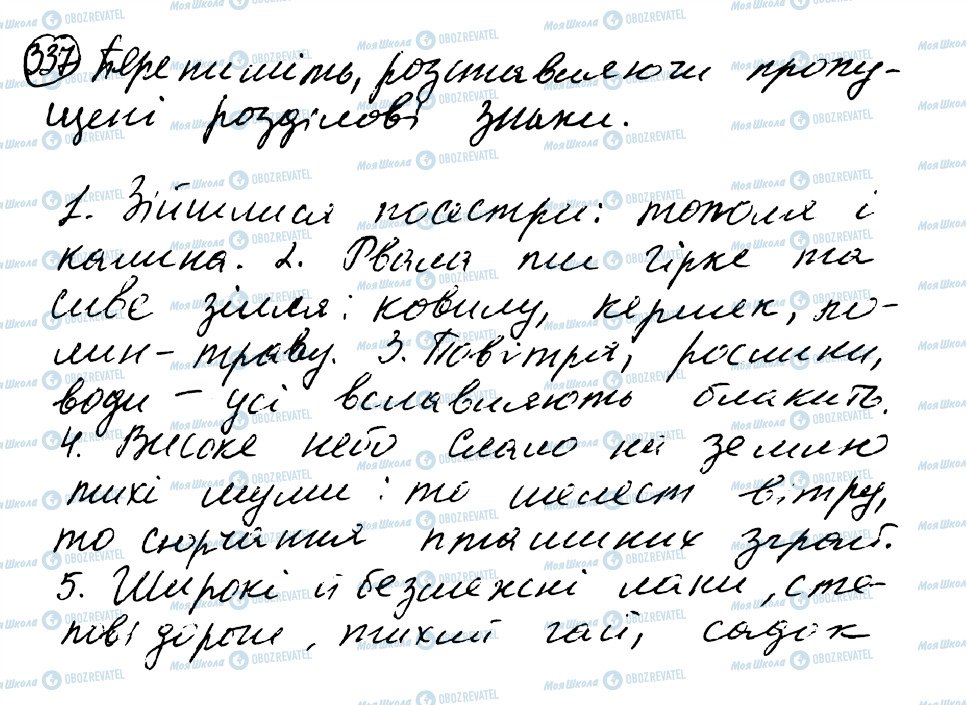 337 Перепишіть, розставляючи пропу-
щені розділові знаки.
1. Зійшлися посестри: тополя і
калина. 2. Рвала ти гірке та
сиве зілля: ковилу, кермек, по-
лин-траву. 3. Повітря, рослини,
води - усі вславляють блакить.
4. Високе небо слало на землю
тихі шуми: то шелест вітру,
то сюрчання пташиних зграй.
5. Широкі й безмежні лани, сте-
пові дороги, тихий гай, садок